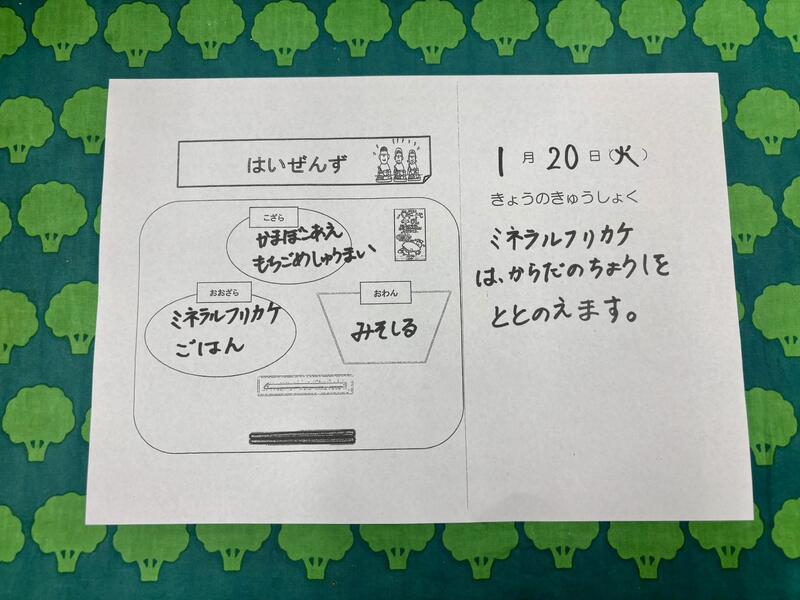 はいぜんず
こざら
かまぼこあえ
もちごめしゅうまい
おおざら
ミネラルフリカケ
ごはん
おわん
みそしる
1月20日(火)
きょうのきゅうしょく
ミネラルフリカケ
は、からだのちょうしを
ととのえます。